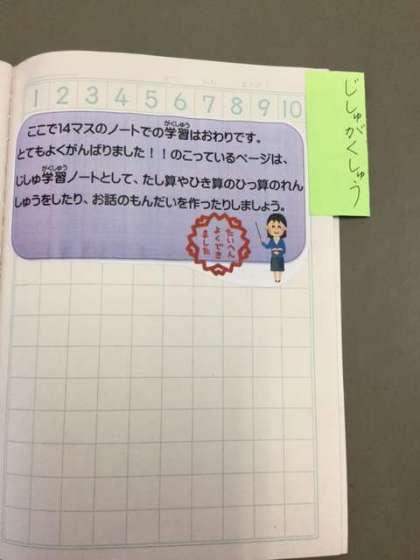 1 2 3 4 5 6 7 8 9 10
がくしゅう
ここで14マスのノートでの学習はおわりです。
とてもよくがんばりました！！のこっているページは、
がくしゅう
じしゅ学習ノートとして、たし算やひき算のひっ算のれん
しゅうをしたり、お話のもんだいを作ったりしましょう。
たいへん
よくでき
ました
じしゅがくしゅう